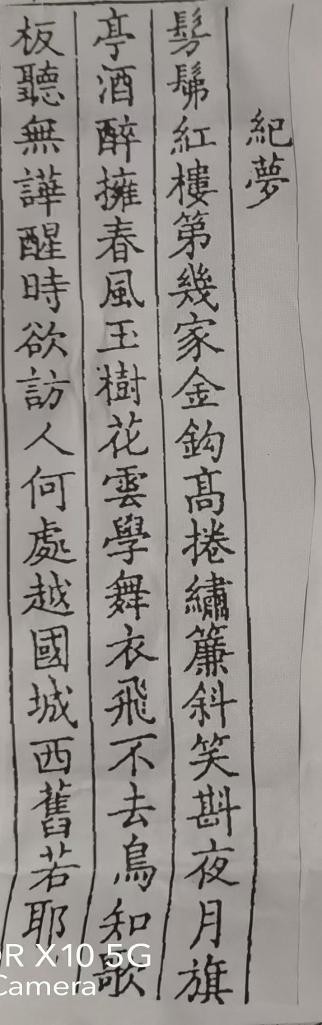 紀夢
髣髴紅樓第幾家金鈎高捲繡簾斜笑斟夜月旗
亭酒醉擁春風玉樹花雲學舞衣飛不去鳥和歌
板聽無譁醒時欲訪人何處越國城西舊若耶
R X10 5G
Camera